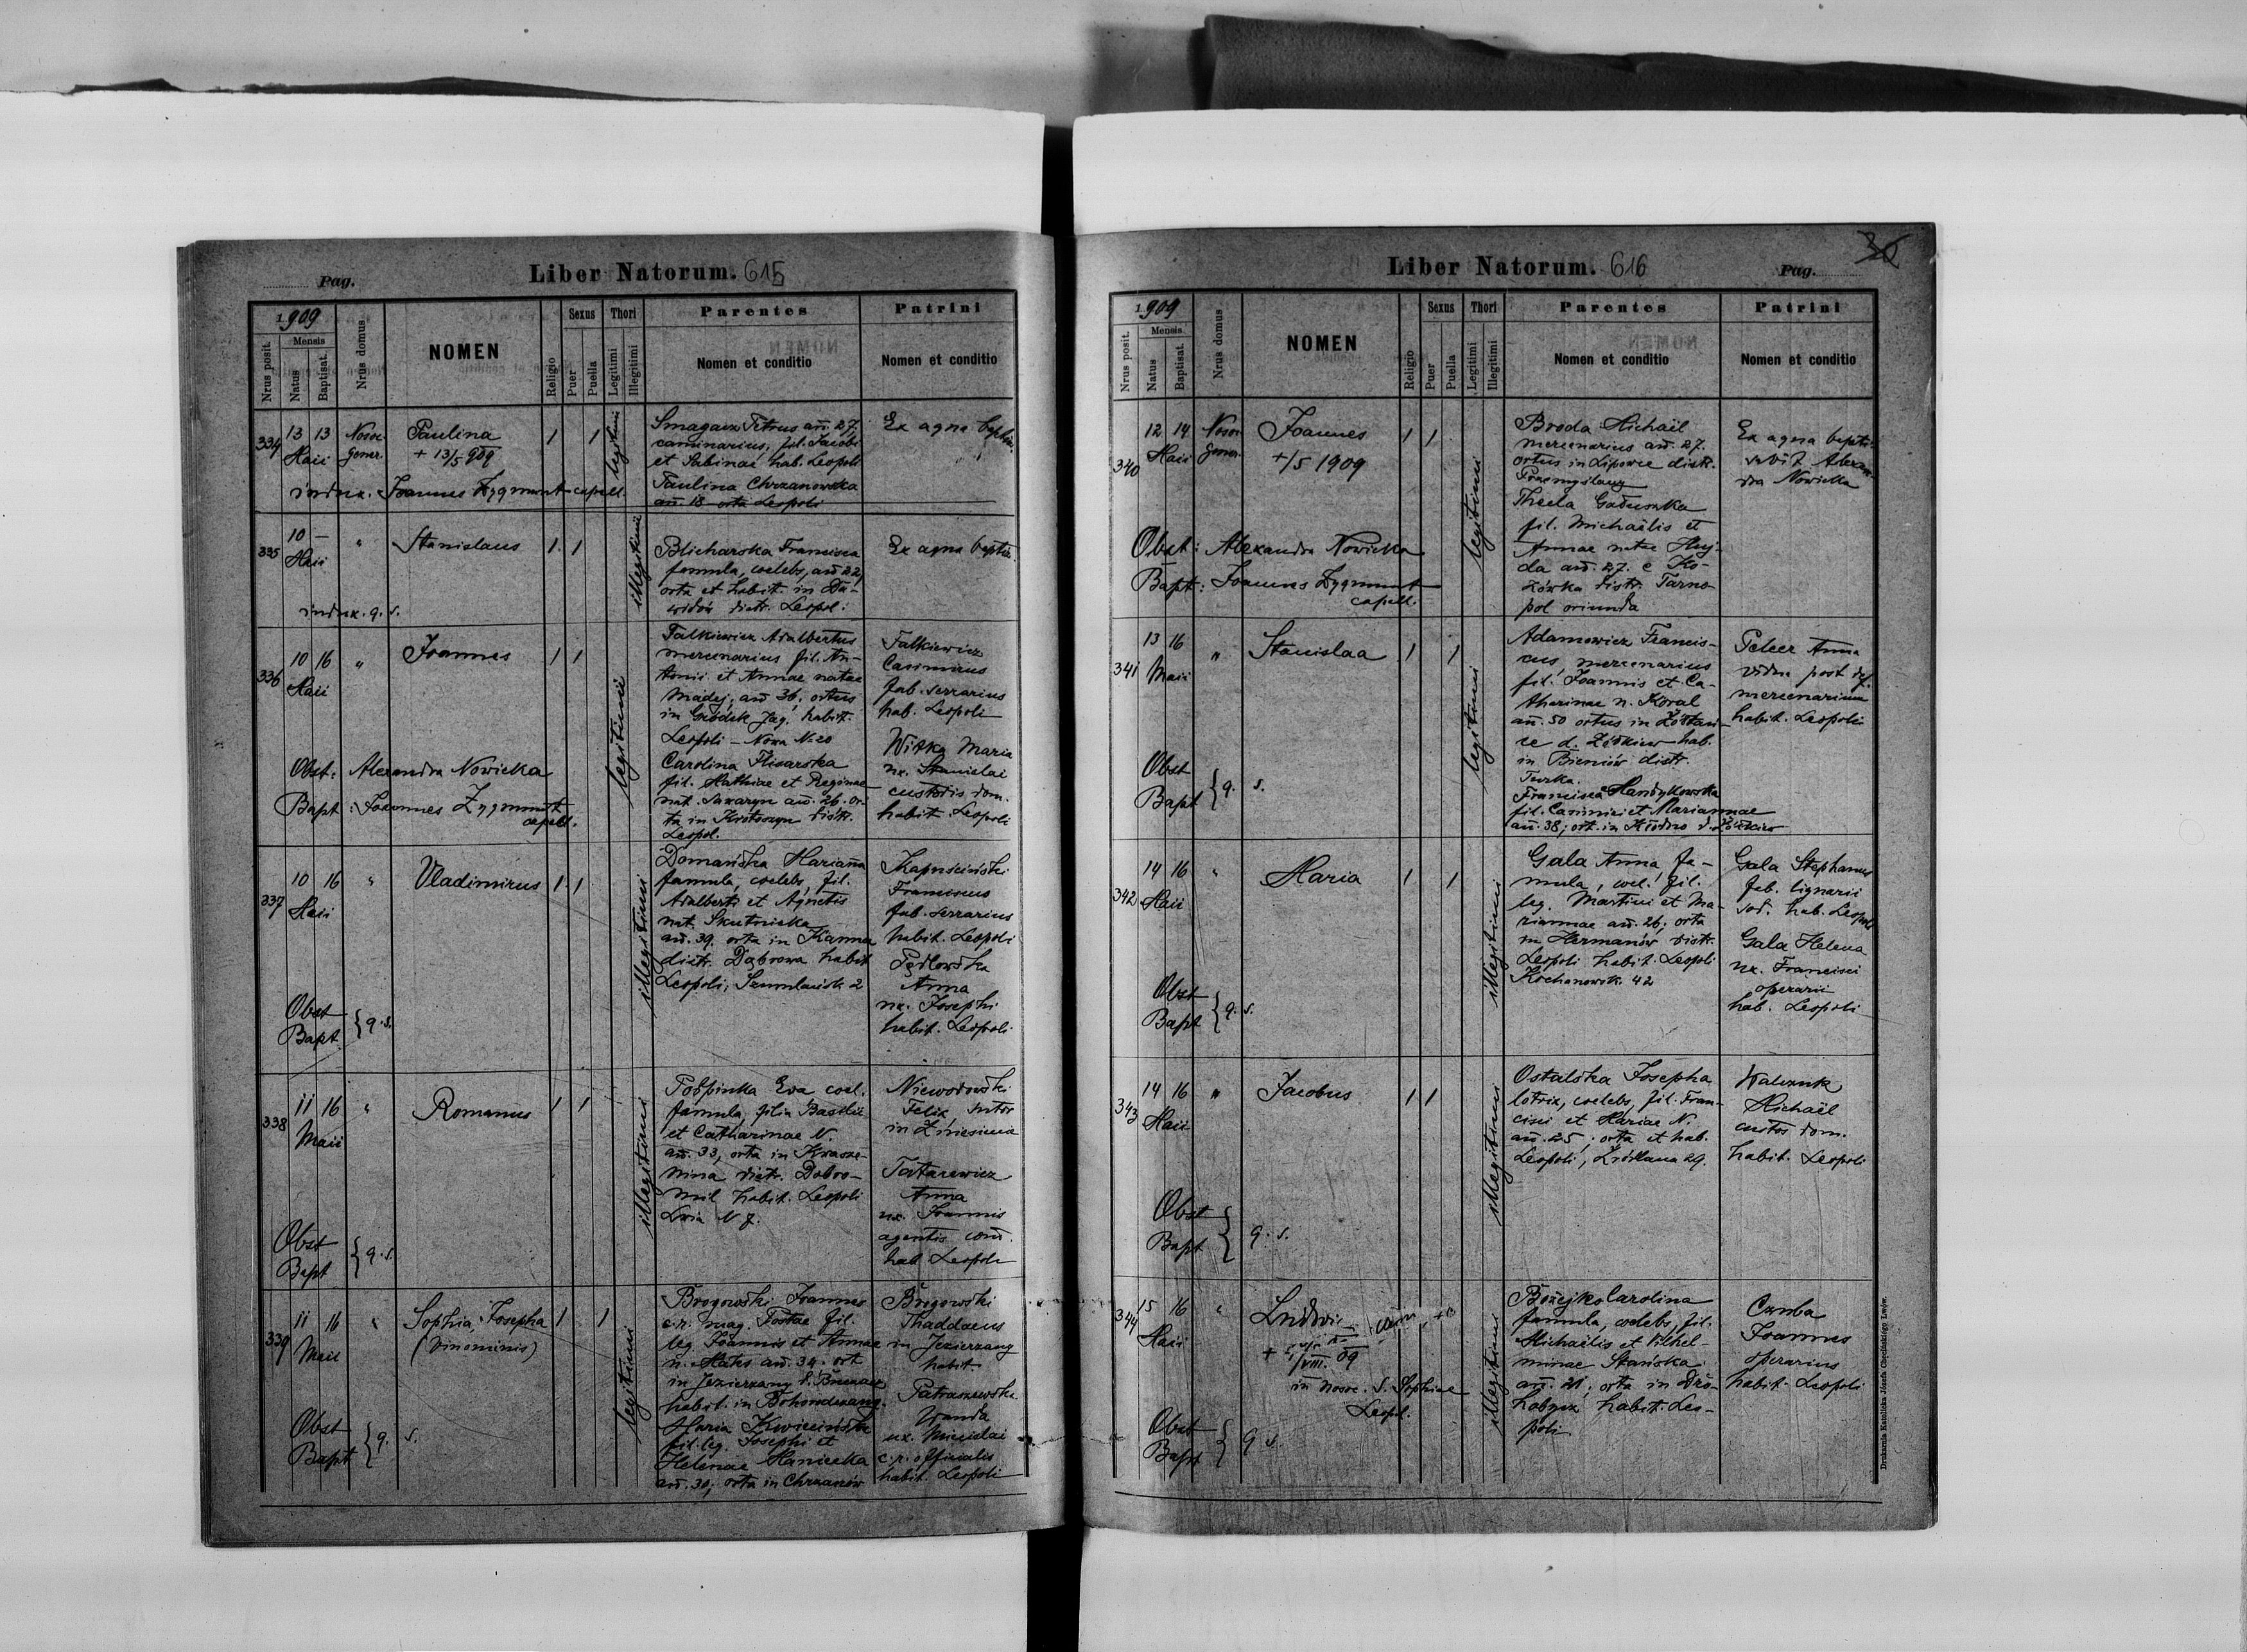 Pag.
Liber Natorum. 615
1909
Nrus posit.
Mensis
Natus
Baptisat.
Nrus domus
NOMEN
Religio
Sexus
Puer
Puella
Thori
Legitimi
Illegitimi
Parentes
Nomen et conditio
Patrini
Nomen et conditio
334
13 13
Maii
Nosoc.
Gener.
Paulina
+ 13/5 909
1 1
legitimi
Petrus añ. 27,
caminarius, fil. Jacobi
et Sabinae, hab. Leopoli
Paulina Chrzanowska
añ. 18 orta Leopoli
Ex aqua
indux. Joannes Zygmunt capell.
335
10 —
Maii
"
Stanislaus
1 1
illegitimi
Blicharska Francisca
famula, coelebs, añ 22,
orta et habit. in Da-
widów distr. Leopol:
Ex aqua
indux. q. s.
336
10 16
Maii
"
Joannes
1 1
legitimi
Falkiewicz Adalbertus
mercenarius fil. An-
tonii et Annae natae
Madej, añ 36, ortus
in Gródek Jag. habit.
Leopoli – Nowa N. 20
Carolina Flisarska
fil. Mathiae et Reginae
nat. añ. 26. or-
ta in Krotoszyn distr.
Leopol.
Falkiewicz
Casimirus
fab. serrarius
hab. Leopoli
Witka Maria
ux. Stanislai
custodis dom.
habit. Leopoli
Obst: Alexandra Nowicka
Bapt: Joannes Zygmunt
capell.
337
10 16
Maii
"
Vladimirus
1 1
illegitimi
Domańska Marianna
famula, coelebs, fil.
Adalberti et Agnetis
nat. Skutnicka
añ. 39. orta in Kanna
distr. Dąbrowa habit
Leopoli, 2
Kapuściński
Franciscus
fab. serrarius
habit. Leopoli
Pędlowska
Anna
ux. Josephi
habit. Leopoli
Obst
Bapt } q. s.
338
11 16
Maii
"
Romanus
1 1
illegitimi
Eva coel.
famula, filia Basilii
et Catharinae N.
añ. 33, orta in
distr. Dobro-
mil habit. Leopoli
N 7.
Niewodowski
Felix, sutor
in Zniesienie
Tatarewicz
Anna
ux. Joannis
agentis com.
hab Leopoli
Obst
Bapt } q. s.
339
11 16
Maii
"
Sophia, Josepha
(binominis)
1 1
legitimi
Brogowski Joannes
c.r. mag. Postae fil.
leg. Joannis et Annae
n. añ. 34. ort
in Jezierzany d.
habit. in
Maria Kwiecińska
fil. leg. Josephi et
Helenae Haniecka
añ. 30; orta in Chrzanów
Brogowski
Thaddaeus
in Jezierzany
habit
Wanda
ux.
c.r. officialis
habit. Leopoli
Obst
Bapt } q. s.
Liber Natorum. 616
Pag.
36
1909
Nrus posit.
Mensis
Natus
Baptisat.
Nrus domus
NOMEN
Religio
Sexus
Puer
Puella
Thori
Legitimi
Illegitimi
Parentes
Nomen et conditio
Patrini
Nomen et conditio
340
12 14
Maii
Nosoc.
Gener.
Joannes
+/5 1909
1 1
legitimi
Broda Michaël
mercenarius añ. 27.
ortus in Lipowce distr.
Przemyślany
Thecla
fil. Michaëlis et
Annae natae Huj-
da añ. 27. e Ko-
zówka distr. Tarno-
pol oriunda
Ex aqua bapti-
zavit Alexan-
dra Nowicka
Obst: Alexandra Nowicka
Bapt: Joannes Zygmunt
capell.
341
13 16
Maii
"
Stanislaa
1 1
legitimi
Adamowicz Francis-
cus, mercenarius
fil. Joannis et Ca-
tharinae n. Koval
añ. 50 ortus in
d. Żółkiew hab.
in Bieniów distr.
Turka.
Francisca Handykowska
fil. Casimiri et Mariannae
añ. 38; ort. in d. Żółkiew
Peleer Anna
vidua post def.
mercenarium
habit. Leopoli
Obst
Bapt } q. s.
342
14 16
Maii
"
Maria
1 1
illegitimi
Gala Anna fa-
mula, coel. fil.
leg. Martini et Ma-
riannae añ. 26; orta
in Hermanów distr.
Leopoli habit. Leopoli
Kochanowsk. 42
Gala Stephanus
fab. lignarii
sod. hab. Leopoli
Gala Helena
ux. Francisci
operarii
hab. Leopoli
Obst
Bapt } q. s.
343
14 16
Maii
"
Jacobus
1 1
illegitimi
Ostalska Josepha
lotrix, coelebs, fil. Fran-
cisci et Mariae N.
añ. 25; orta et hab.
Leopoli, Źródlana 29.
Walczuk
Michaël
custos dom.
habit. Leopoli
Obst
Bapt } q. s.
344
15 16
Maii
"
+ /VIII. 09
in nosoc. S. Sophiae
Leopol.
illegitimi
Bożejko Carolina
famula, coelebs, fil.
Michaëlis et Wilhel-
minae Stańska
añ. 21; orta in Dro-
hobycz habit. Leo-
poli
Czuba
Joannes
operarius
habit. Leopoli
Obst
Bapt } q. s.
Drukarnia Katolicka Józefa Chęcińskiego Lwów.